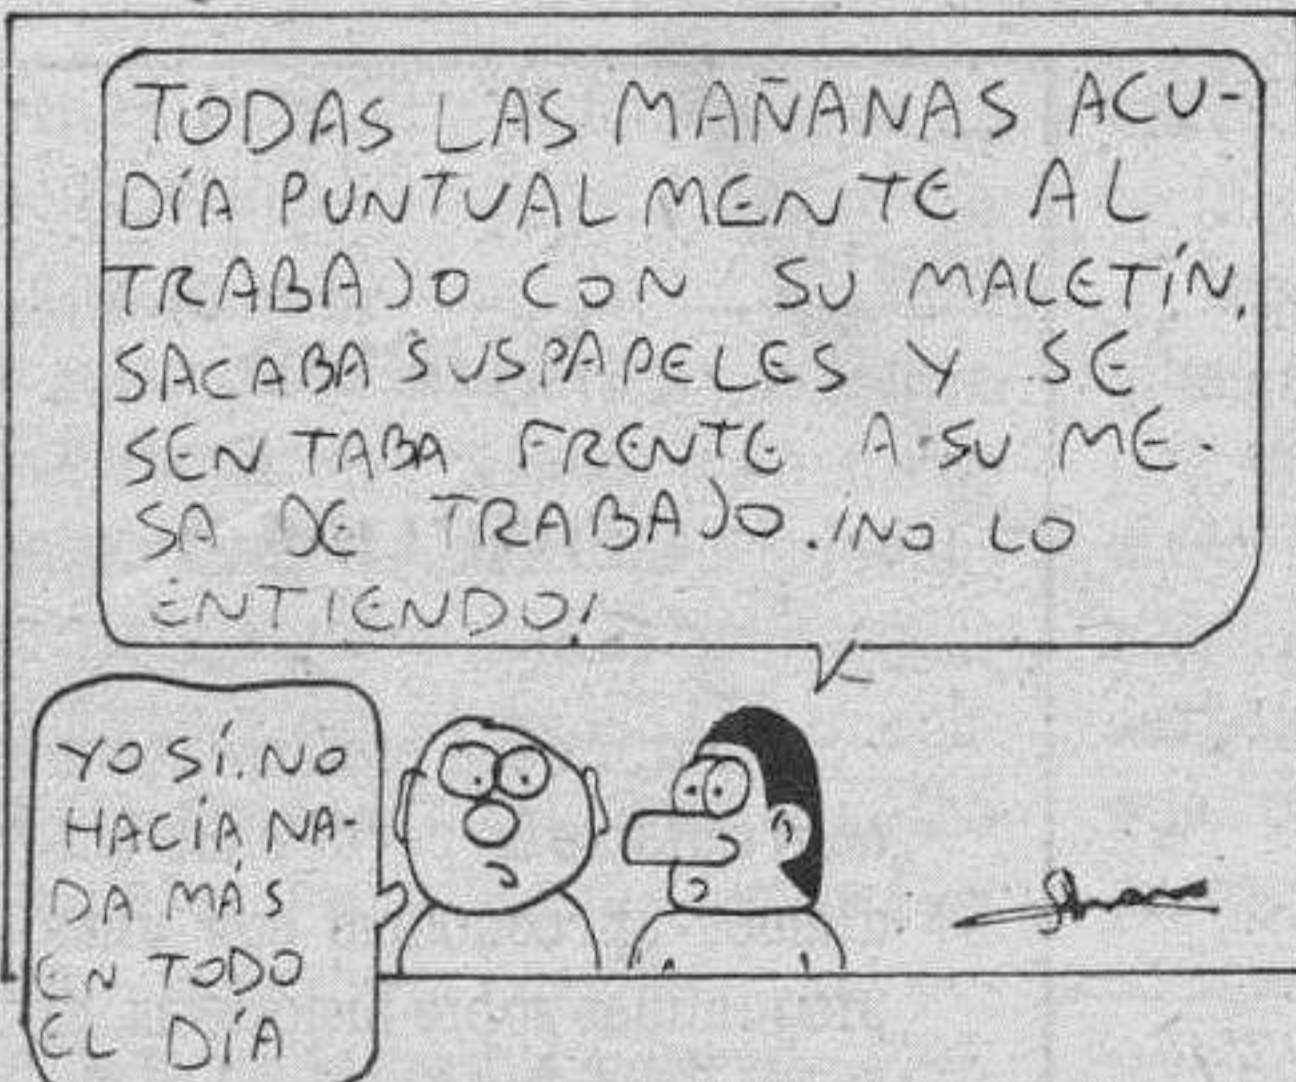 TODAS LAS MAÑANAS ACU-
DÍA PUNTUALMENTE AL
TRABAJO CON SU MALETÍN,
SACABA SUS PAPELES Y SE
SENTABA FRENTE A SU ME-
SA DE TRABAJO. ¡NO LO
ENTIENDO!
YO SÍ. NO
HACÍA NA-
DA MÁS
EN TODO
EL DÍA